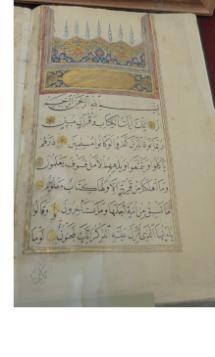 بسم الله الرحمن الرحيم
الر تلك آيات الكتاب وقرآن مبين
ربما يود الذين كفروا لو كانوا مسلمين ذرهم
يأكلوا ويتمتعوا ويلههم الأمل فسوف يعلمون
وما أهلكنا من قرية إلا ولها كتاب معلوم
ما تسبق من أمة أجلها وما يستأخرون وقالوا
يا أيها الذي نزل عليه الذكر إنك لمجنون لوما